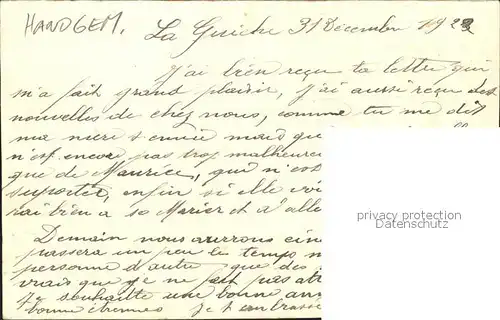 HANDGEM. La Guiche 31 Décembre 192
J'ai bien reçu ta lettre qui
m'a fait grand plaisir, J'ai aussi reçu des
nouvelles de chez nous, comme tu me dis
ma mere s'ennuie mais que
n'est encore pas trop malheureu
que de Maurice, que n'est
suporter, enfin si elle
bien a se Marier et a
Demain nous aurons
passera un peu le temps
personne d'autre que des
vrais que je ne fait pas
Je souhaite une bonne ann
bonne étrennes Je t'embrasse
privacy protection
Datenschutz